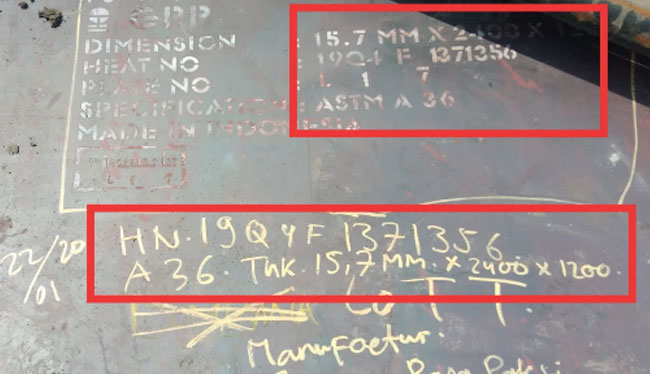 GRP
DIMENSION : 15.7 MM X 2400 X 12
HEAT NO : 19Q4 F 1371356
PLATE NO : L 1 7
SPECIFICATION : ASTM A 36
MADE IN INDONESIA
22/20
01
HN. 19Q4F 1371356
A 36. THK. 15,7 MM. X 2400 X 1200.
Manufactur: